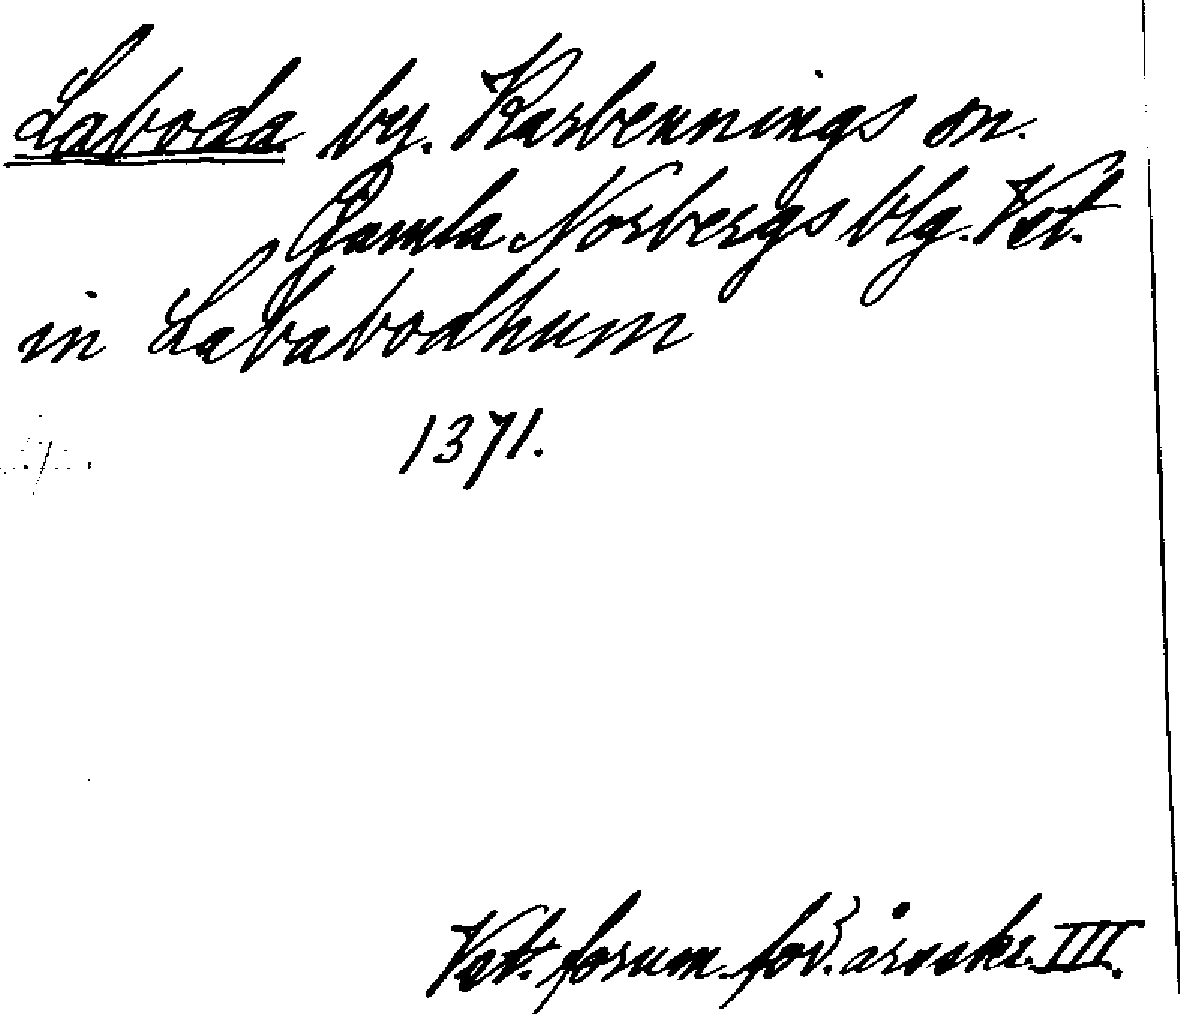 Laboda by. Karbennings sn.
Gamla Norbergs blg. Vst.
in Lababodhum
1371.
Vst. fornm. för. årsskr. III.